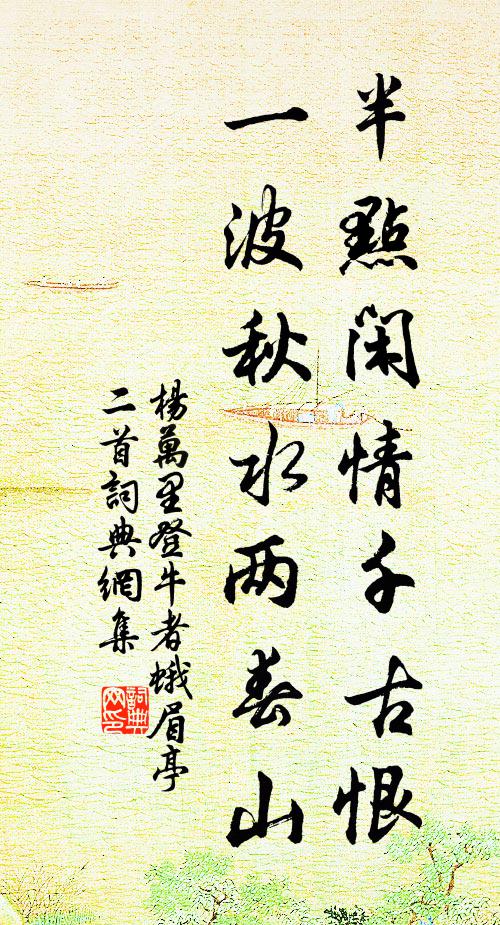 半點閑情千古恨
一波秋水两春山
楊萬里登牛者蛾眉亭
二首詞典網集
詞典
网印